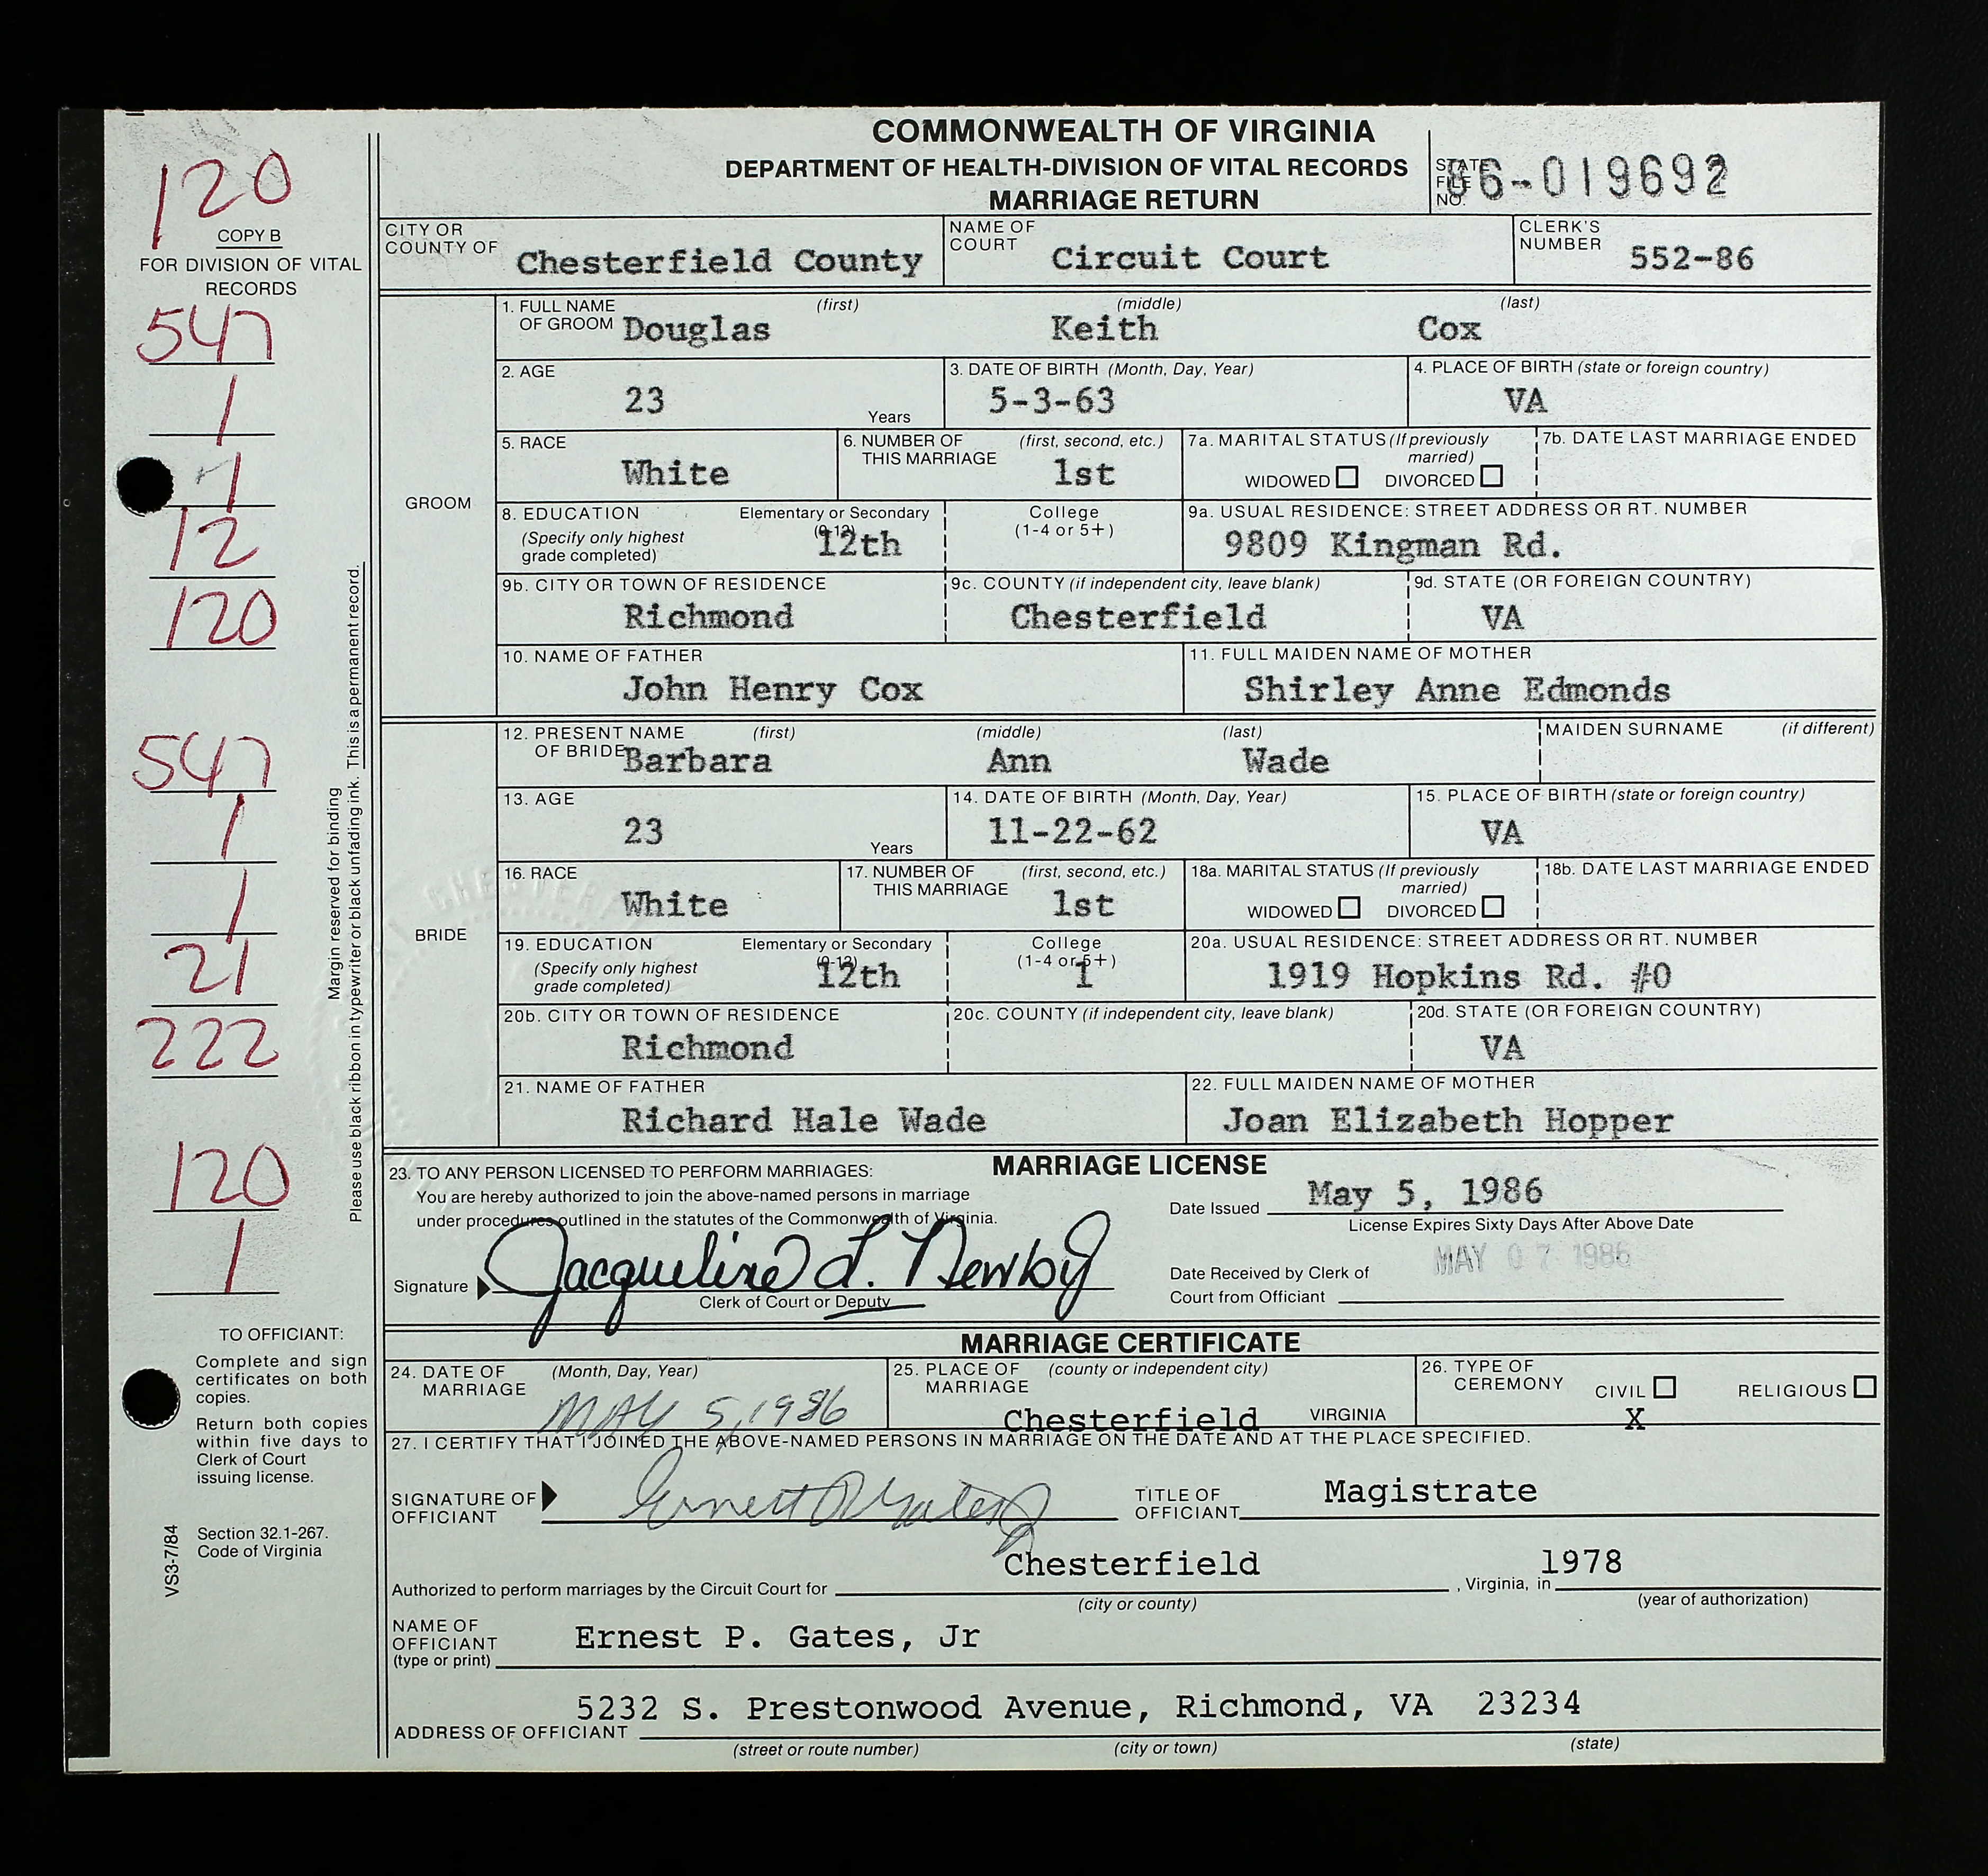 COMMONWEALTH OF VIRGINIA
DEPARTMENT OF HEALTH-DIVISION OF VITAL RECORDS
MARRIAGE RETURN
STATE FILE NO. 86-019692
120
COPY B
FOR DIVISION OF VITAL
RECORDS
547
1
1
12
120
547
1
1
21
222
120
1
Margin reserved for binding
Please use black ribbon in typewriter or black unfading ink. This is a permanent record.
TO OFFICIANT:
Complete and sign
certificates on both
copies.
Return both copies
within five days to
Clerk of Court
issuing license.
Section 32.1-267.
Code of Virginia
VS3-7/84
CITY OR COUNTY OF Chesterfield County NAME OF COURT Circuit Court CLERK'S NUMBER 552-86
GROOM
1. FULL NAME OF GROOM (first) (middle) (last)
Douglas Keith Cox
2. AGE 23 Years 3. DATE OF BIRTH (Month, Day, Year) 5-3-63 4. PLACE OF BIRTH (state or foreign country) VA
5. RACE White 6. NUMBER OF THIS MARRIAGE (first, second, etc.) 1st 7a. MARITAL STATUS (If previously married) WIDOWED DIVORCED 7b. DATE LAST MARRIAGE ENDED
8. EDUCATION (Specify only highest grade completed) Elementary or Secondary (0-12) 12th College (1-4 or 5+) 9a. USUAL RESIDENCE: STREET ADDRESS OR RT. NUMBER 9809 Kingman Rd.
9b. CITY OR TOWN OF RESIDENCE Richmond 9c. COUNTY (if independent city, leave blank) Chesterfield 9d. STATE (OR FOREIGN COUNTRY) VA
10. NAME OF FATHER John Henry Cox 11. FULL MAIDEN NAME OF MOTHER Shirley Anne Edmonds
BRIDE
12. PRESENT NAME OF BRIDE (first) (middle) (last) MAIDEN SURNAME (if different)
Barbara Ann Wade
13. AGE 23 Years 14. DATE OF BIRTH (Month, Day, Year) 11-22-62 15. PLACE OF BIRTH (state or foreign country) VA
16. RACE White 17. NUMBER OF THIS MARRIAGE (first, second, etc.) 1st 18a. MARITAL STATUS (If previously married) WIDOWED DIVORCED 18b. DATE LAST MARRIAGE ENDED
19. EDUCATION (Specify only highest grade completed) Elementary or Secondary (0-12) 12th College (1-4 or 5+) 1 20a. USUAL RESIDENCE: STREET ADDRESS OR RT. NUMBER 1919 Hopkins Rd. #0
20b. CITY OR TOWN OF RESIDENCE Richmond 20c. COUNTY (if independent city, leave blank) 20d. STATE (OR FOREIGN COUNTRY) VA
21. NAME OF FATHER Richard Hale Wade 22. FULL MAIDEN NAME OF MOTHER Joan Elizabeth Hopper
MARRIAGE LICENSE
23. TO ANY PERSON LICENSED TO PERFORM MARRIAGES:
You are hereby authorized to join the above-named persons in marriage
under procedures outlined in the statutes of the Commonwealth of Virginia.
Date Issued May 5, 1986
License Expires Sixty Days After Above Date
Signature Jacqueline L. Newby
Clerk of Court or Deputy
Date Received by Clerk of Court from Officiant MAY 07 1986
MARRIAGE CERTIFICATE
24. DATE OF MARRIAGE (Month, Day, Year) MAY 5, 1986 25. PLACE OF MARRIAGE (county or independent city) Chesterfield VIRGINIA 26. TYPE OF CEREMONY CIVIL X RELIGIOUS
27. I CERTIFY THAT I JOINED THE ABOVE-NAMED PERSONS IN MARRIAGE ON THE DATE AND AT THE PLACE SPECIFIED.
SIGNATURE OF OFFICIANT Ernest P Gates Jr TITLE OF OFFICIANT Magistrate
Authorized to perform marriages by the Circuit Court for Chesterfield , Virginia, in 1978
(city or county) (year of authorization)
NAME OF OFFICIANT (type or print) Ernest P. Gates, Jr
ADDRESS OF OFFICIANT 5232 S. Prestonwood Avenue, Richmond, VA 23234
(street or route number) (city or town) (state)